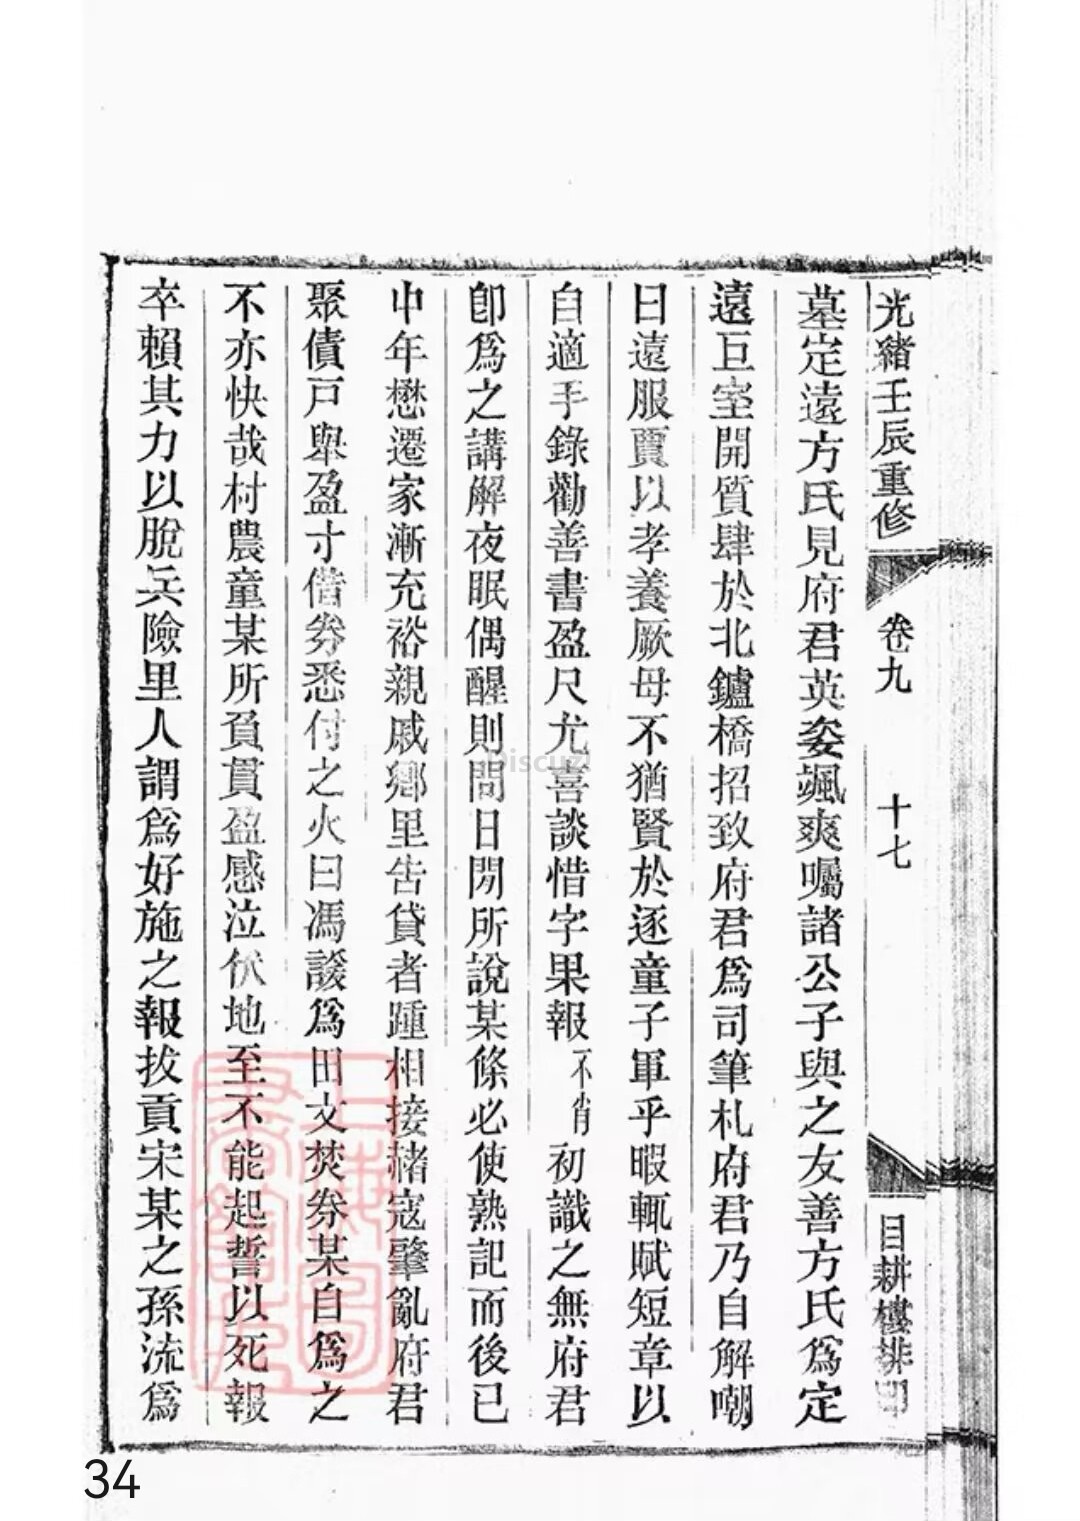 光緒壬辰重修
卷九
十七
目耕樓排印
墓定遠方氏見府君英姿颯爽囑諸公子與之友善方氏爲定
遠巨室開質肆於北鑪橋招致府君爲司筆札府君乃自解嘲
曰遠服賈以孝養厥母不猶賢於逐童子軍乎暇輒賦短章以
自適手錄勸善書盈尺尤喜談惜字果報不肖初識之無府君
卽爲之講解夜眠偶醒則問日閒所說某條必使熟記而後已
中年懋遷家漸充裕親戚鄉里告貸者踵相接赭寇肇亂府君
聚債戶舉盈寸借券悉付之火曰馮諼爲田文焚券某自爲之
不亦快哉村農童某所負貫盈感泣伏地至不能起誓以死報
卒賴其力以脫兵險里人謂爲好施之報拔貢宋某之孫流爲
上海圖
書館藏
Discuz!
34